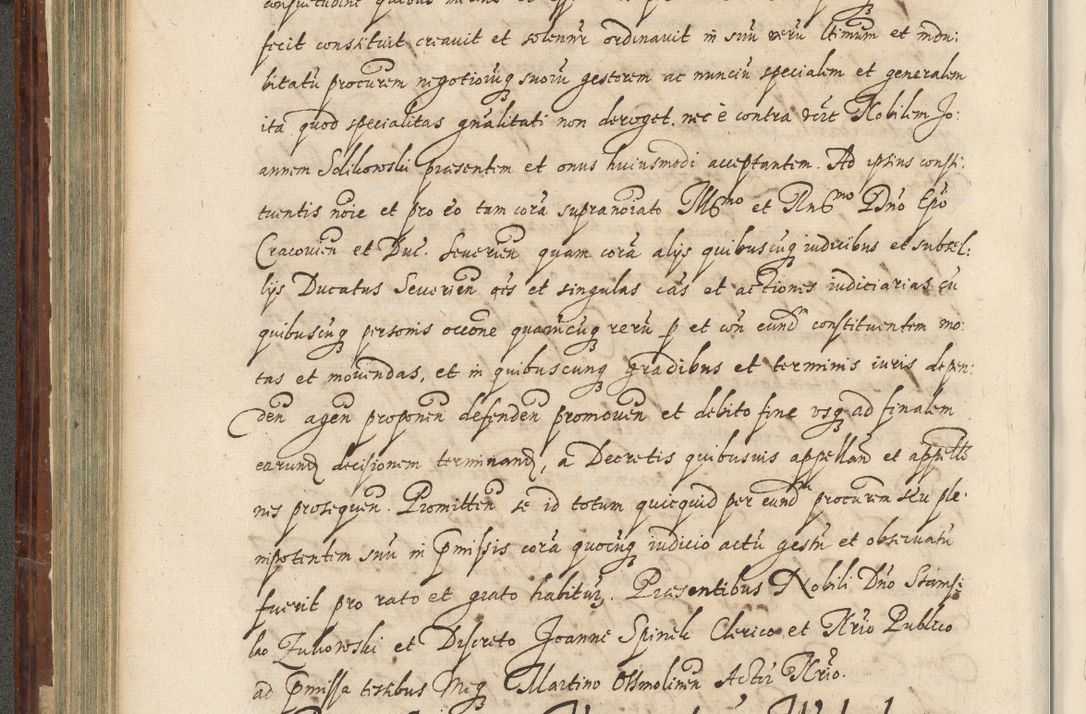 fecit constituit creavit et solennr ordinavit in suu veru ltimum et indu:
bitatu procurem negotioruq suoru gestorem ac nunciu specialem et generalem
ita quod specialitas gnalitati non deroget. nec e contra vdzt Nobilem Jo:
annem Solikowski praesentem et onus huiusmodi acceptantem. Ad ipsius consti:
tuentis noie et pro eo tam cora supranoiato Illmo et Rndmo Dno Epo
Cracovien et Duc. Severien quam cora alijs quibuscuq iudicibus et subsel:
lijs Ducatus Severien oes et singulas cas et actiones iudiciarias cu
quibuscuq personis occone quarucuq reru p et con eund constituentem mo:
tas et movendas, et in quibuscunq gradibus et terminis iuris depen:
den agen proponen defenden promoven et debito fine usq ad finalem
earund decisionem terminand, a Decretis quibusuis appelland et appello
nes prosequen. Promitten se id totum quicquid per eund procurem seu ple:
nipotentem suu in pmissis cora quocuq iudicio actu gestu et observatu
fuerit pro rato et grato habituru. Praesentibus Nobili Dno Stanis:
lao Zukowski et Discreto Joanne Spinek Clerico et Nrio Publico
ad pmissa testibus Meq Martino Ossmolinen Actu Nrio.